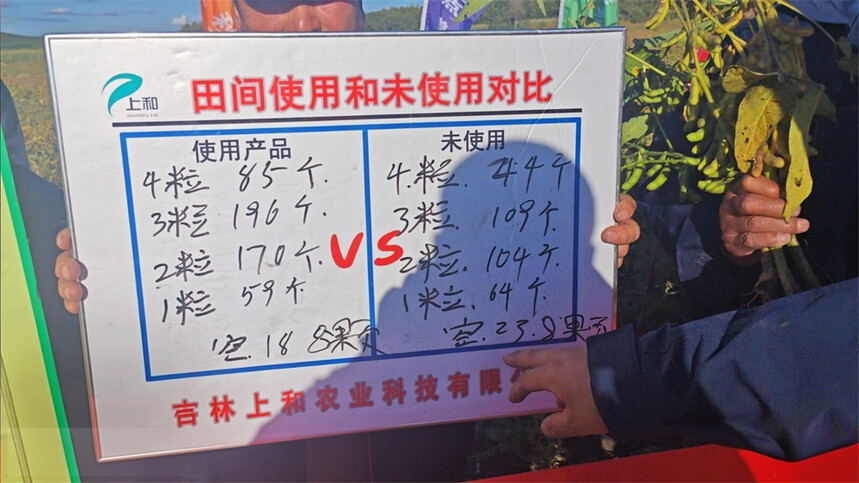 上和
SHANG HE
田间使用和未使用对比
使用产品
4粒 85个.
3粒 196个.
2粒 170个.
1粒 59个
空.18 8果页
VS
未使用
4.粒. 44个
3粒. 109个.
2粒. 104个.
1粒. 64个.
空.23.8果页
吉林上和农业科技有限